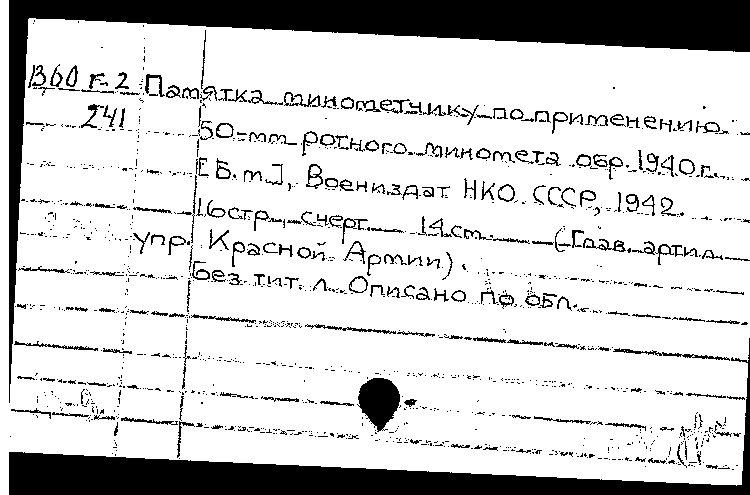 В60 г-2 Памятка минометчику по применению
241 50-мм ротного миномета обр. 1940 г.
[Б.м.], Воениздат НКО СССР, 1942.
16 стр., с черт. 14 см. (Глав. артил.
упр. Красной Армии).
Без тит. л. Описано по обл.